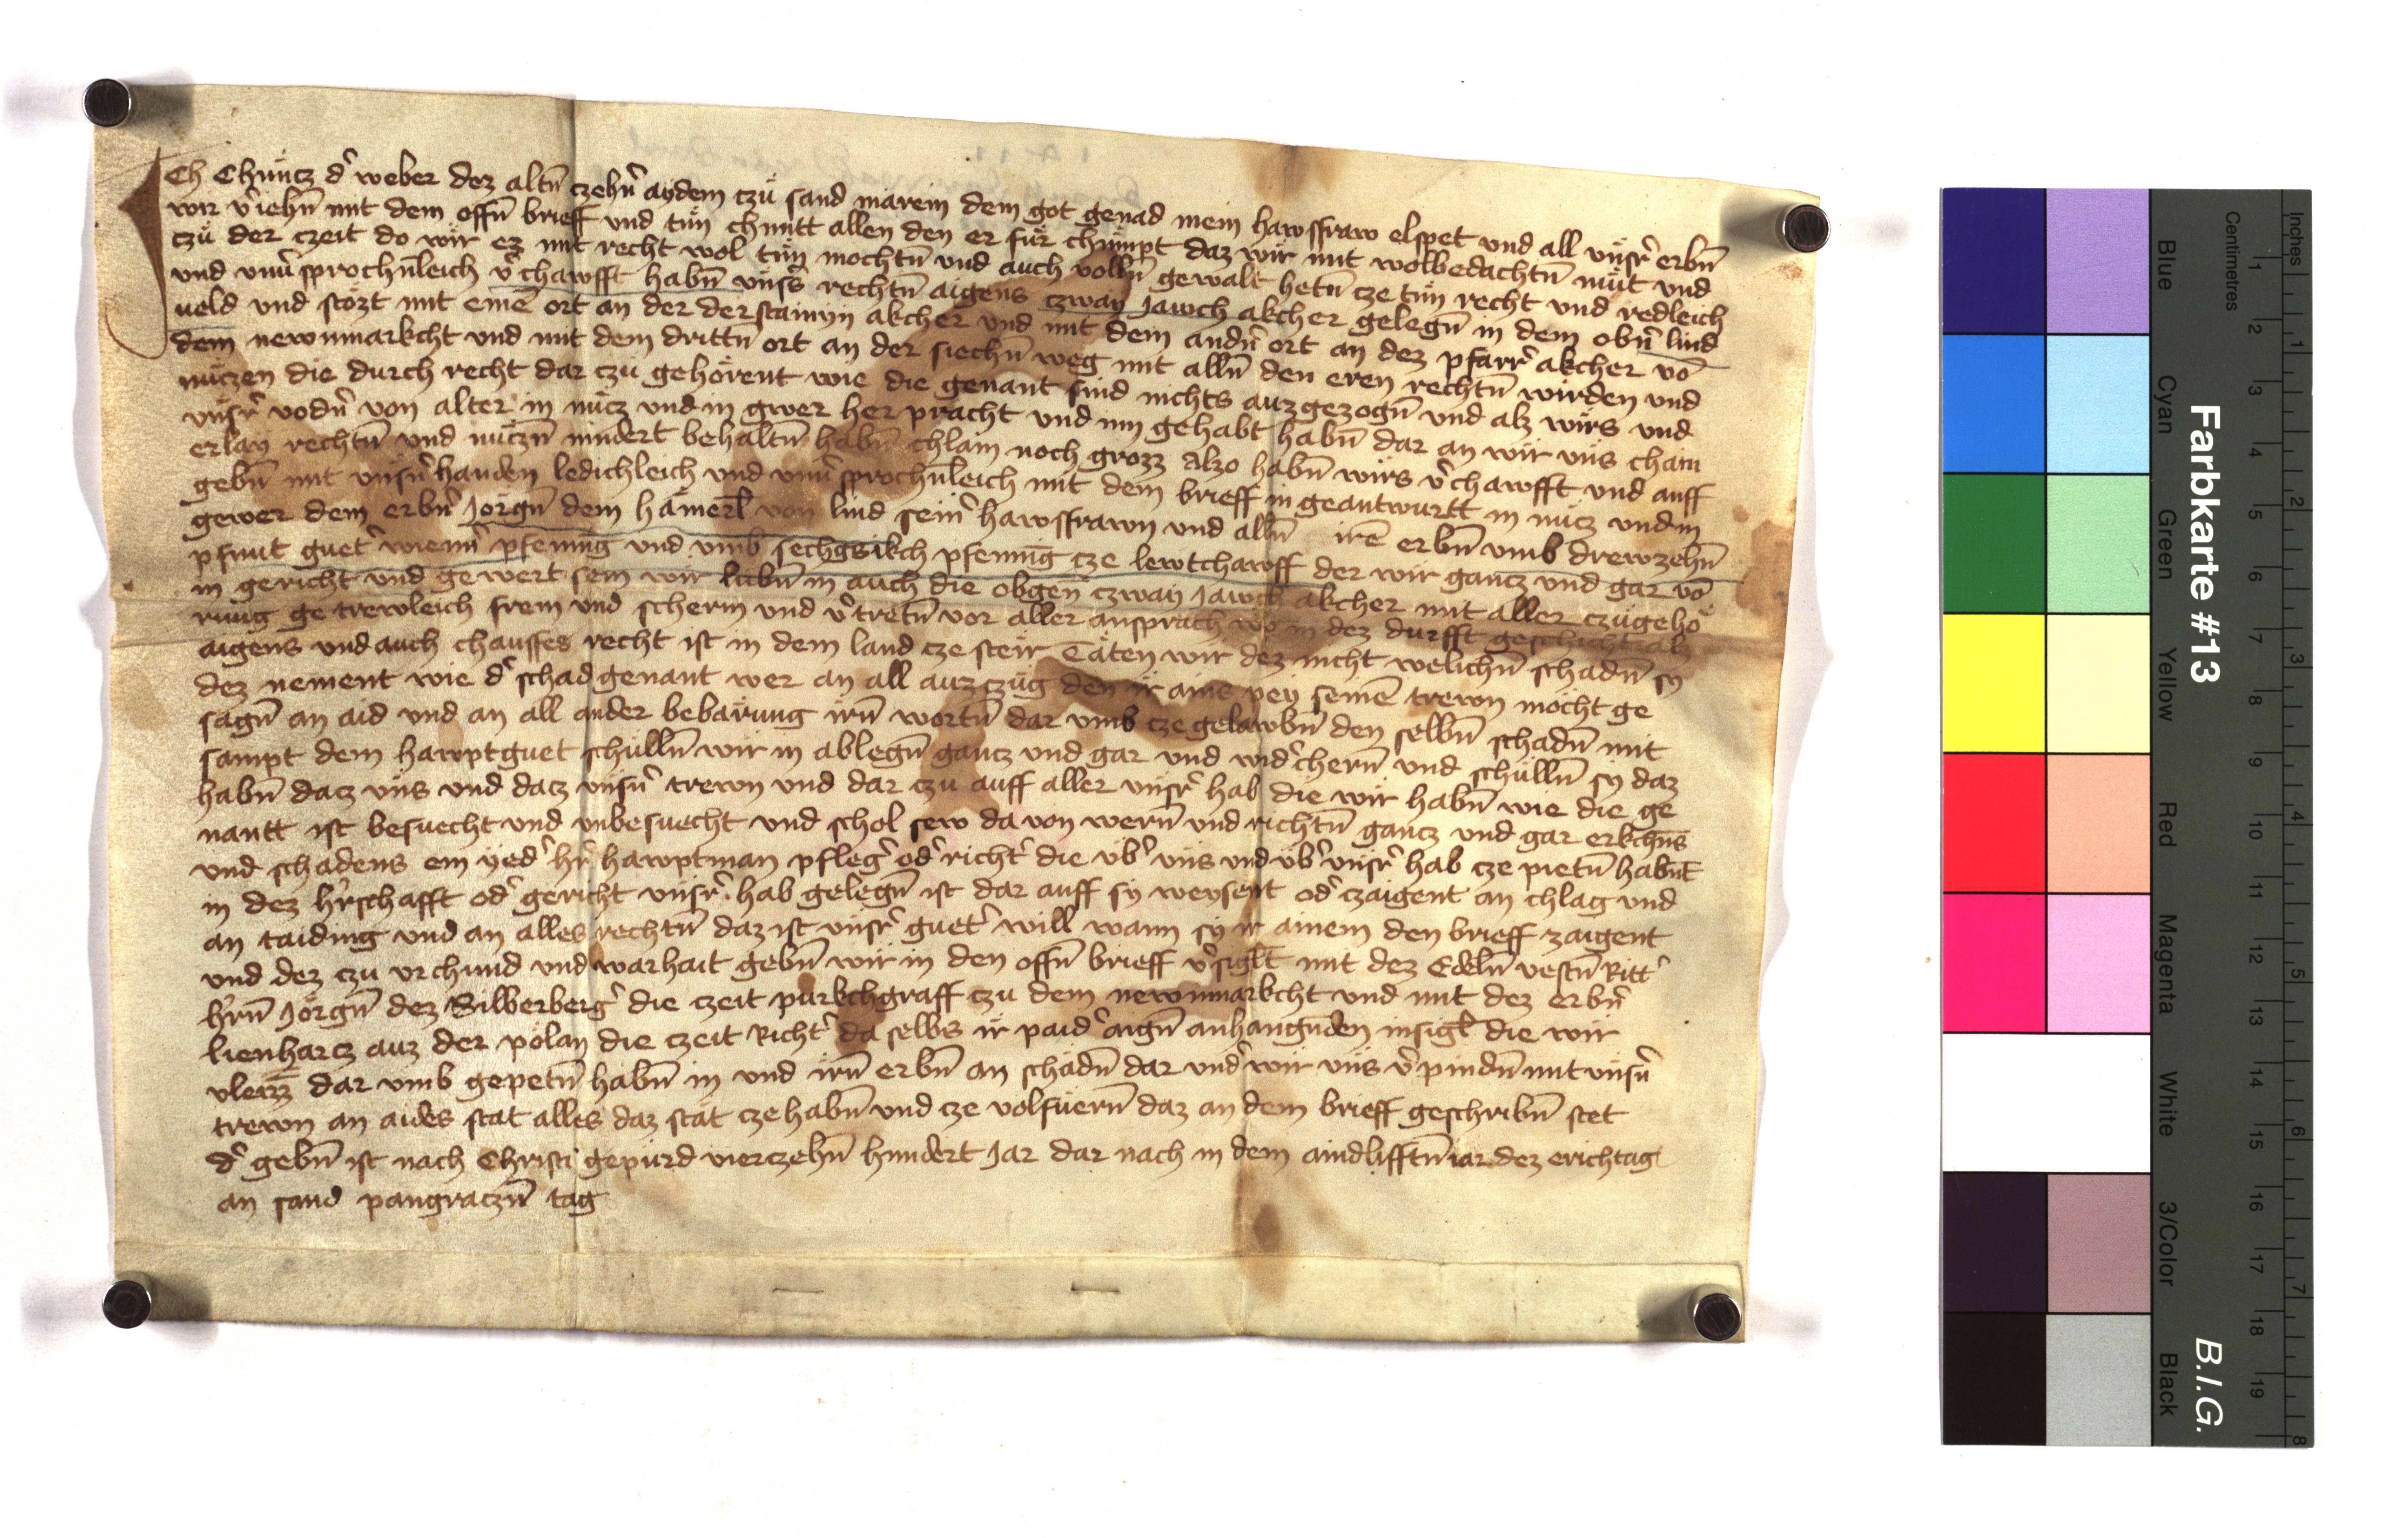 Ich Chüncz d' weber dez altn̄ czehn̄' aydem czü sand marein dem got genad mein hawsfraw elspet und all ünsr' erbn̄
wir v'iehn̄ mit dem offn̄ brieff und tün chuntt allen den er für chümpt daz wir mit wolbedachtn̄ müt und
czü der czeit do wir ez mit recht wol tün mochtn̄ und auch volln̄ gewalt hetn̄ cze tün recht und redleich
und vnu'sprochn̄leich v'chawfft habn̄ ünss' rechtn̄ aigens czway Jawch akcher gelegn̄ in dem obn̄' lind
veld und stözt mit eine͞ ort an der derstainyn akcher und mit dem andn̄' ort an dez pfarr' akcher vo͞
dem newnmarkcht und mit dem drittn̄ ort an der siechn̄ weg mit alln̄ den eren rechtn̄ wirden und
nüczen die durch recht dar czü gehörent wie die genant sind nichts auzgezogn̄ und alz wirs und
ünsr' vodn̄' von alter in nücz und in gwer her pracht und inn gehabt habn̄ dar an wir üns chain
erlay rechtn̄ und nüczn̄ nindert behaltn̄ habn̄ chlain noch grozz Alzo habn̄ wirs v'chawfft und auff
gebn̄ mit ünsn̄' handen ledichleich und vnu'sprochn̄leich mit dem brieff in geantwurtt in nücz und in
gewer dem erbn̄' Jörgn̄ dem hämerl̄ von lind sein' hawsfrawn und alln̄ ire͞ erbn̄ vmb drewzehn̄
pfunt guet' wienn̄' pfennīg und vmb sechgsikch pfennīg cze lewtchawff der wir gancz und gar vo͞
in gericht und gewert sein wir lubn̄ in auch die obgen̄ czway Jawch akcher mit aller czügehö
rüng ge trewleich frein und scherm und v'tretn̄ vor aller ansprach wo in dez durfft geschicht alz
aigens und auch chauffes recht ist in dem land cze steir Täten wir dez nicht welichn̄ schadn̄ sy
dez nement wie d' schad genant wer an all auzczüg den ir aine͞ pey seine͞ trewn möcht ge
sagn̄ an aid und an all ander bebärung irn̄ wortn̄ dar vmb cze gelawbn̄ den selbn̄ schadn̄ mit
sampt dem hawptguet schülln̄ wir in ablegn̄ gancz und gar und wid'chern̄ und schülln̄ sy daz
habn̄ dacz üns und dacz ünsn̄' trewn und dar czu auff aller ünsr' hab die wir habn̄ wie die ge
nantt ist besuecht und vnbesuecht und schol sew da von wern̄ und richtn̄ gancz und gar erkchn̄s
und schadens ein yed' hr' hawptman pfleg' od' richt' die üb' üns und üb' ünsr' hab cze pietn̄ habn̄t
in dez hr'schafft od' gericht ünsr' hab gelegn̄ ist dar auff sy weysent od' czaigent an chlag und
an taiding und an alles rechtn̄ daz ist ünsr' guet' will wann sy ir ainem den brieff zaigent
und dez czu vrchund und warhait gebn̄ wir in den offn̄ brieff v'siglt̄ mit dez Edeln̄ vestn̄ Ritt'
hr'n̄ Jörgn̄ dez Silberberg' die czeit purkchgraff czu dem newnmarkcht und mit dez erbn̄'
lienharcz auz der pölan die czeit Richt' da selbs ir paid' aign̄ anhangn̄den insigl̄ die wir
vleizz̄ dar vmb gepetn̄ habn̄ in und irn̄ erbn̄ an schadn̄ dar und' wir üns v'pindn̄ mit ünsn̄'
trewn an aides stat alles daz stät cze habn̄ und cze volfüern̄ daz an dem brieff geschribn̄ stet
d' gebn̄ ist nach Christi gepürd vierczehn̄ hundert Jar dar nach in dem aindlifftn̄ iar dez erichtag
an sand pangraczn̄ tag
Farbkarte #13
B.I.G.
Centimetres
Inches
Blue
Cyan
Green
Yellow
Red
Magenta
White
3/Color
Black
1 2 3 4 5 6 7 8 9 10 11 12 13 14 15 16 17 18 19
1 2 3 4 5 6 7 8